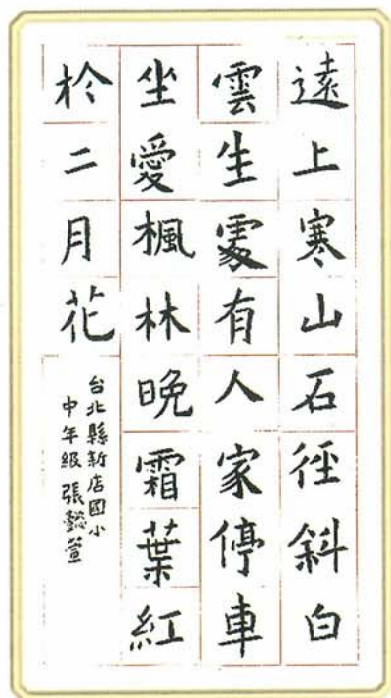 遠上寒山石徑斜白
雲生處有人家停車
坐愛楓林晚霜葉紅
於二月花
台北縣新店國小
中年級 張懿萱